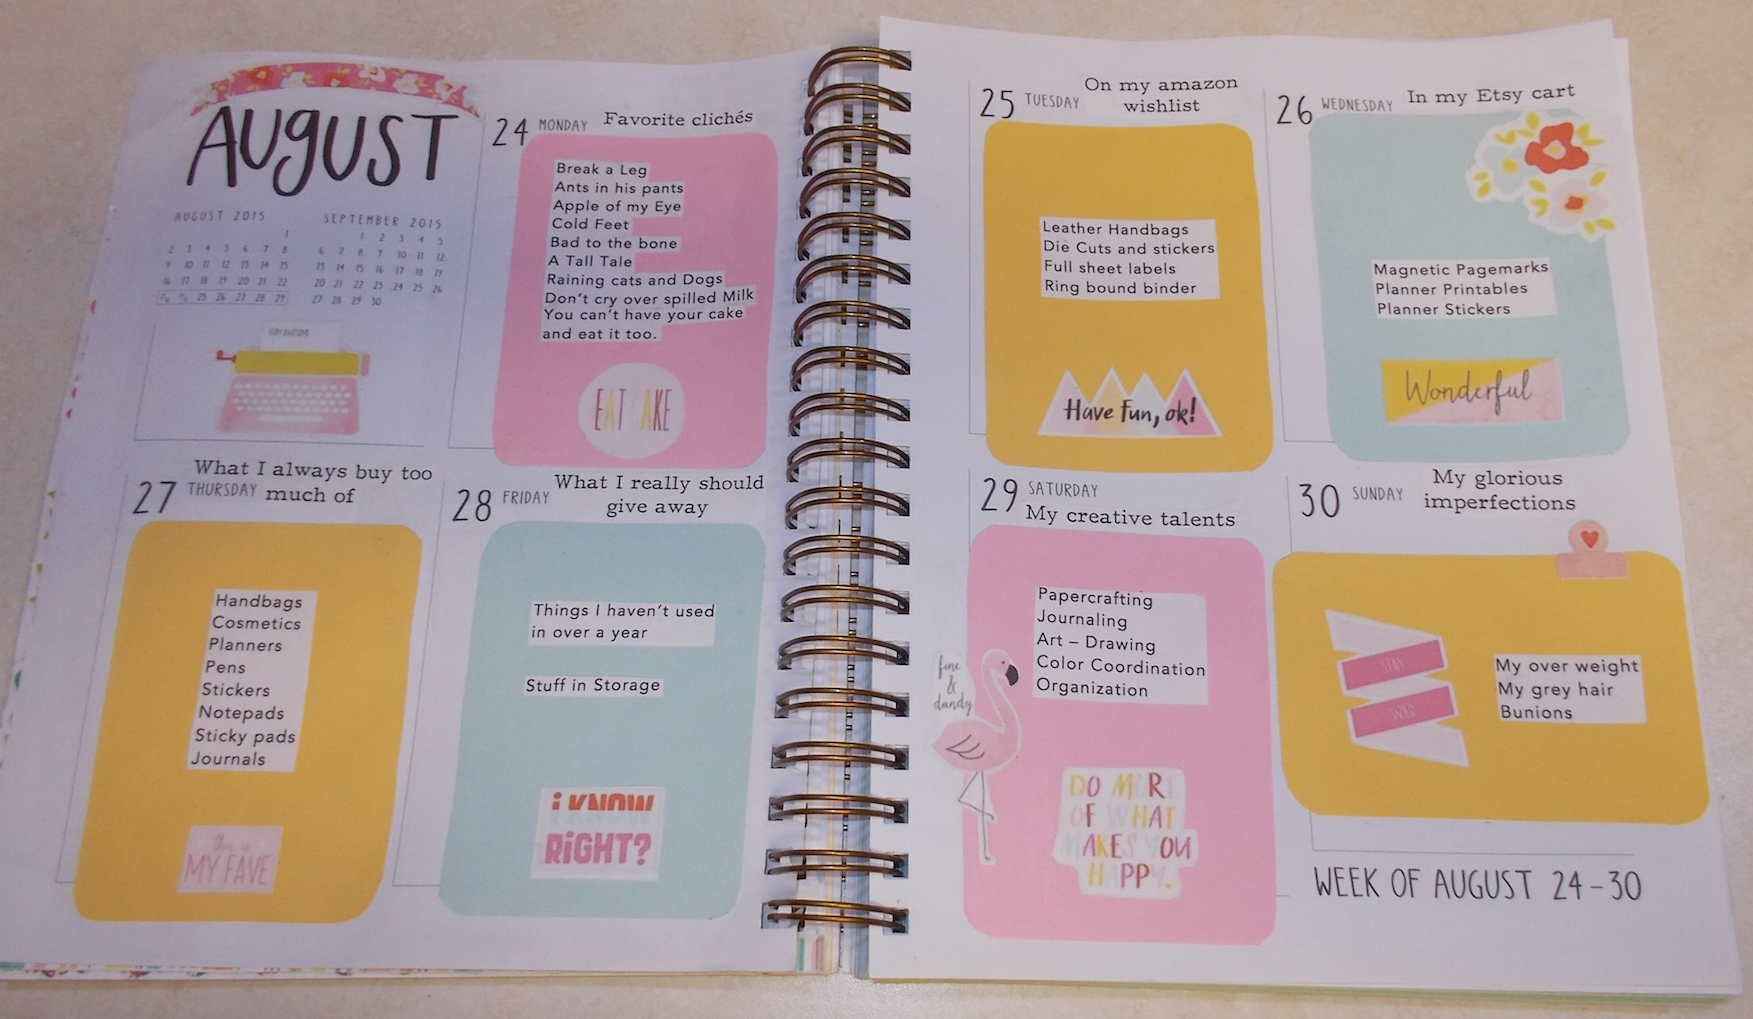 AUGUST
AUGUST 2015
1
2 3 4 5 6 7 8
9 10 11 12 13 14 15
16 17 18 19 20 21 22
25 26 27 28 29
SEPTEMBER 2015
1 2 3 4 5
6 7 8 9 10 11 12
13 14 15 16 17 18 19
20 21 22 23 24 25 26
27 28 29 30
24 MONDAY Favorite clichés
Break a Leg
Ants in his pants
Apple of my Eye
Cold Feet
Bad to the bone
A Tall Tale
Raining cats and Dogs
Don't cry over spilled Milk
You can't have your cake
and eat it too.
EAT CAKE
27 THURSDAY
What I always buy too
much of
Handbags
Cosmetics
Planners
Pens
Stickers
Notepads
Sticky pads
Journals
this is
MY FAVE
28 FRIDAY
What I really should
give away
Things I haven't used
in over a year
Stuff in Storage
i KNOW
RiGHT?
25 TUESDAY
On my amazon
wishlist
Leather Handbags
Die Cuts and stickers
Full sheet labels
Ring bound binder
Have Fun, ok!
26 WEDNESDAY In my Etsy cart
Magnetic Pagemarks
Planner Printables
Planner Stickers
Wonderful
29 SATURDAY
My creative talents
Papercrafting
Journaling
Art – Drawing
Color Coordination
Organization
fine
&
dandy
DO MORE
OF WHAT
MAKES YOU
HAPPY.
30 SUNDAY
My glorious
imperfections
STAY
WILD
My over weight
My grey hair
Bunions
WEEK OF AUGUST 24-30